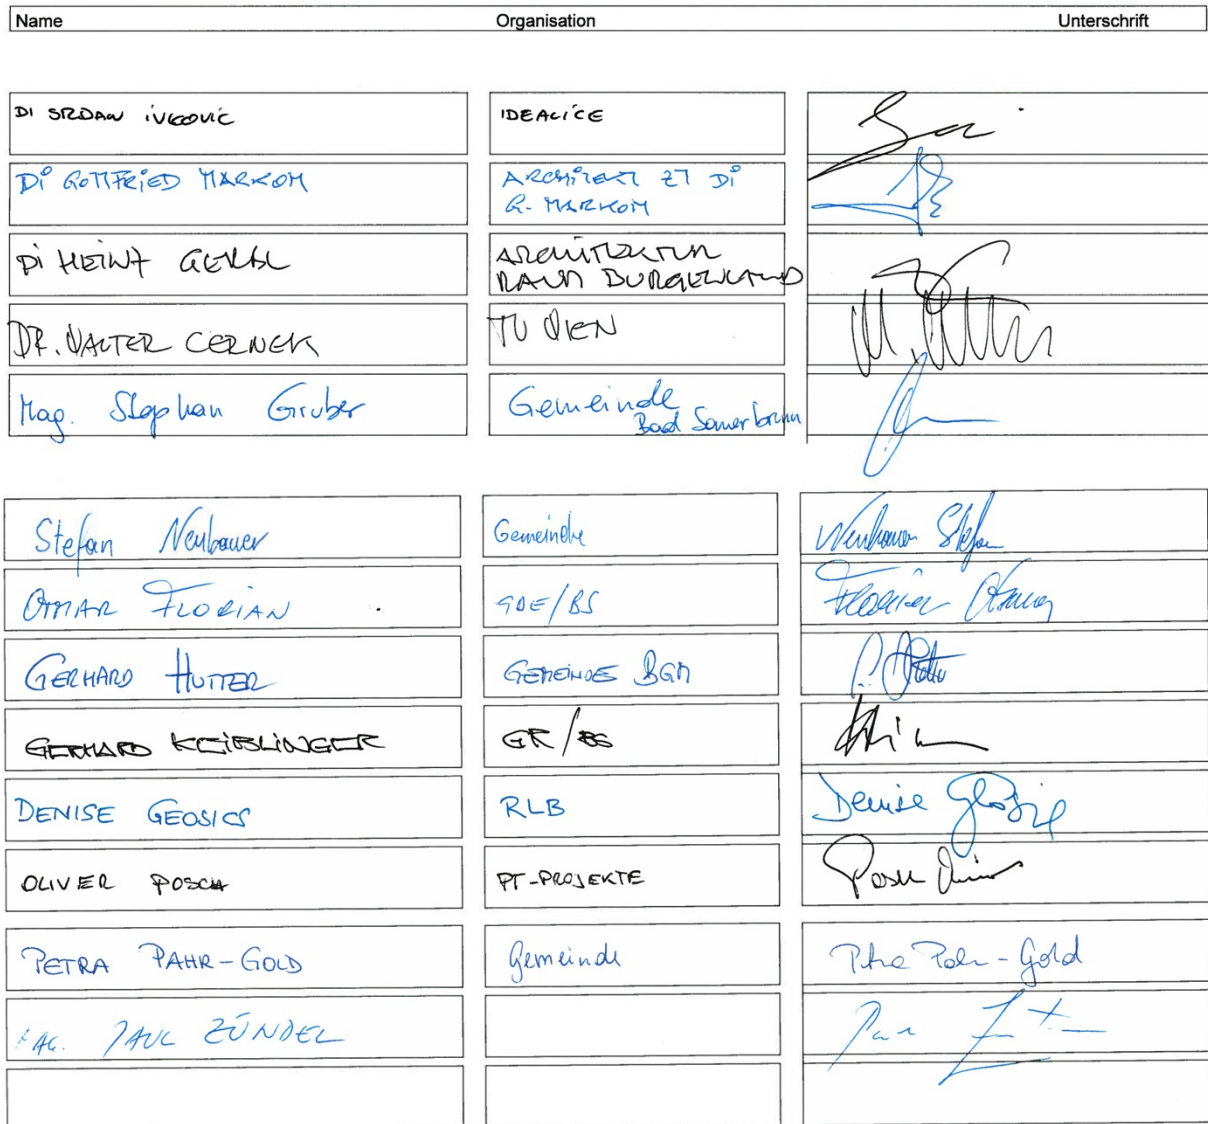 Name Organisation Unterschrift
DI SRDAN IVKOVIC IDEALICE
DI GOTTFRIED MARKOM ARCHITEKT ZT DI
G. MARKOM
DI HEINZ GERBL ARCHITEKTUR
RAUM BURGENLAND
DR. WALTER CERNEK TU WIEN
Mag. Stephan Gruber Gemeinde
Bad Sauerbrunn
Stefan Neubauer Gemeinde Neubauer Stefan
OMAR FLORIAN GDE/BS Florian Omar
GERHARD HUTTER GEMEINDE BGM
GERHARD KEIBLINGER GR/BS
DENISE GEOSICS RLB Denise
OLIVER POSCH PT-PROJEKTE Posch
PETRA PAHR-GOLD Gemeinde Petra Pahr-Gold
MAG. PAUL ZÜNDEL